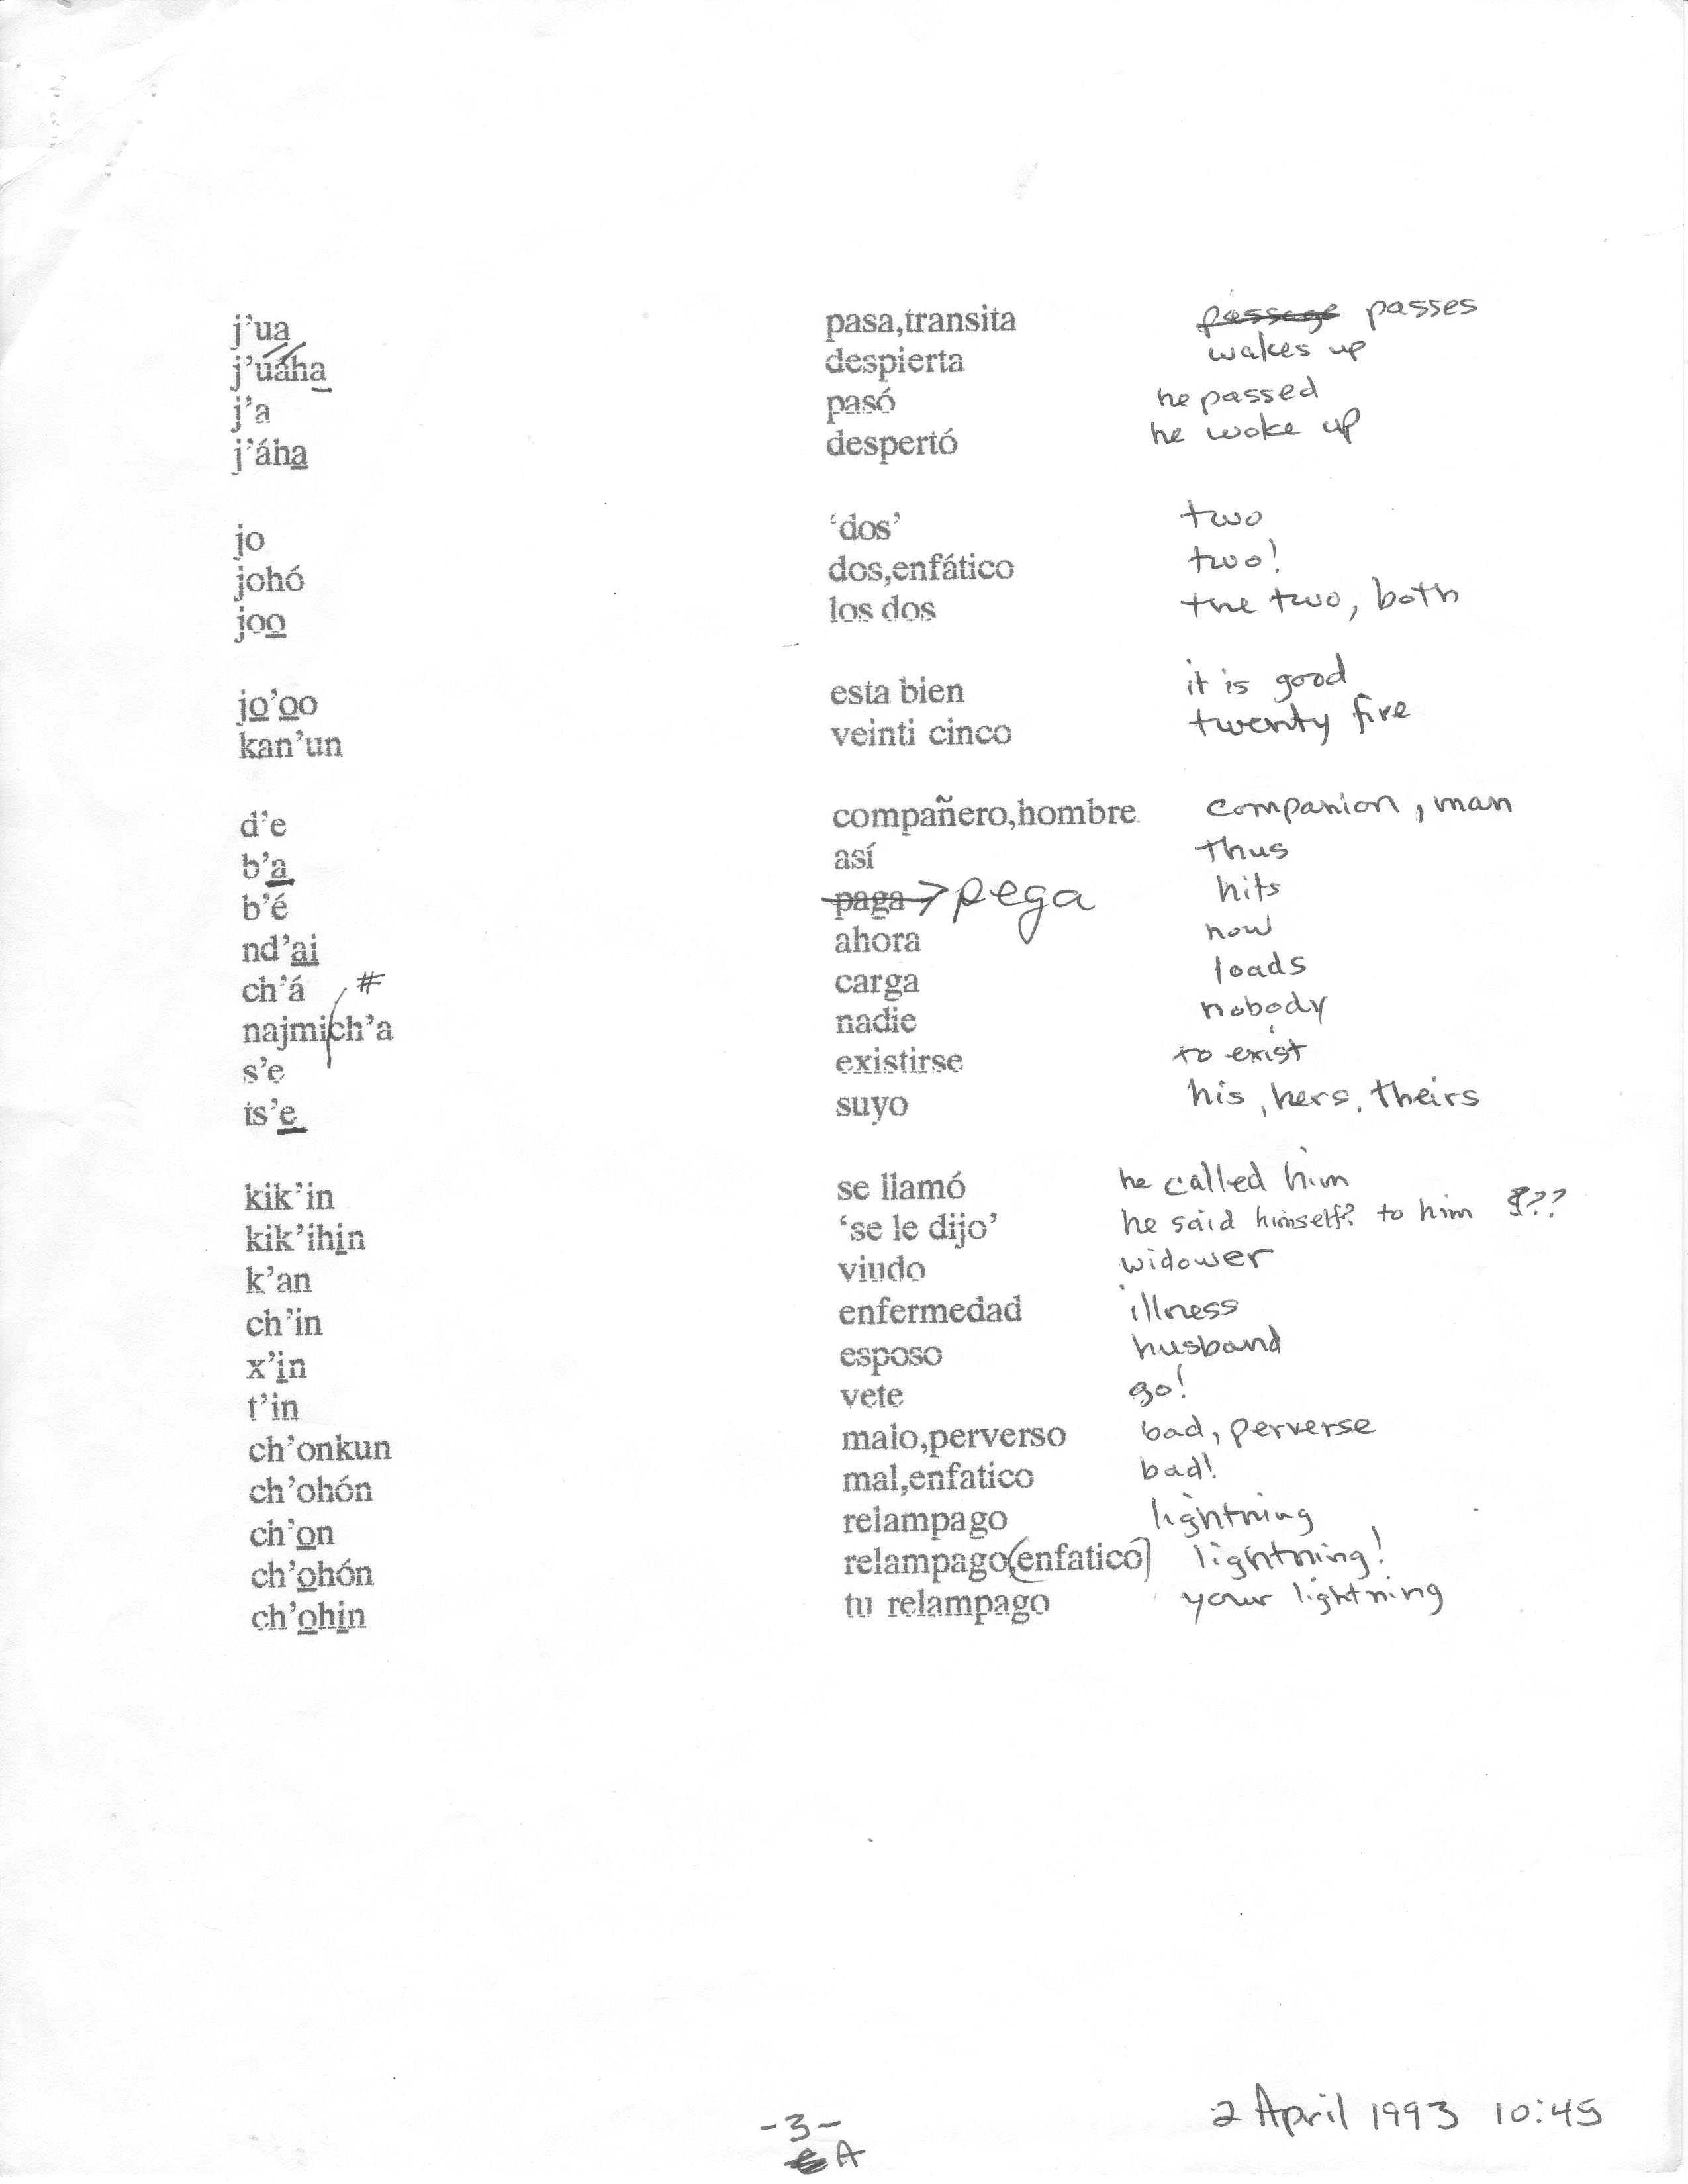 j’ua pasa,transita passage passes
j’úáha̲ despierta wakes up
j’a pasó he passed
j’áha̲ despertó he woke up
jo ‘dos’ two
johó dos,enfático two!
joo̲ los dos the two, both
jo̲’o̲o esta bien it is good
kan’un veinti cinco twenty five
d’e compañero,hombre companion, man
b’a̲ así thus
b’é paga > pega hits
nd’a̲i̲ ahora now
ch’á # carga loads
najmich’a nadie nobody
s’e existirse to exist
ts’e̲ suyo his, hers, theirs
kik’in se llamó he called him
kik’ihi̲n ‘se le dijo’ he said himself? to him ???
k’an viudo widower
ch’in enfermedad illness
x’i̲n esposo husband
t’in vete go!
ch’onkun malo,perverso bad, perverse
ch’ohón mal,enfatico bad!
ch’o̲n relampago lightning
ch’o̲hón relampago,(enfatico) lightning!
ch’o̲hi̲n tu relampago your lightning
-3- 2 April 1993 10:45
A